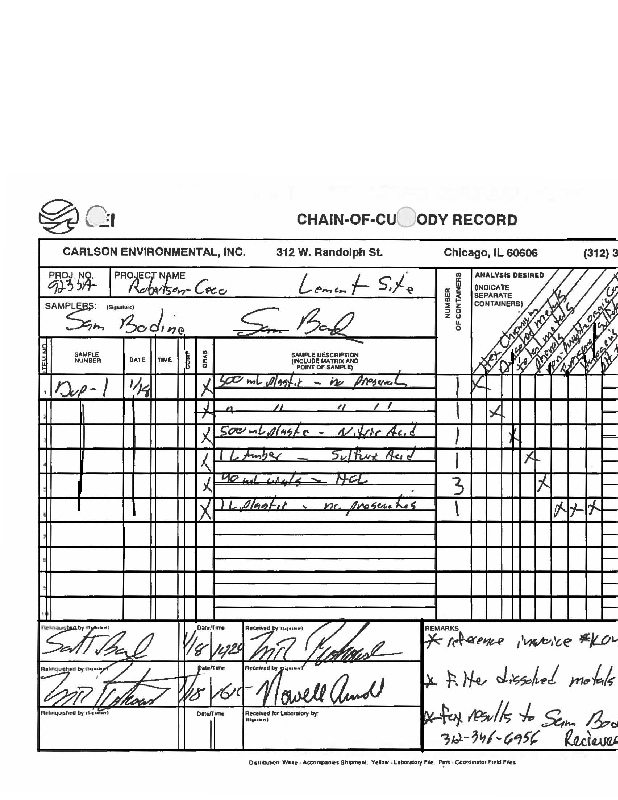 CHAIN-OF-CU ODY RECORD
CARLSON ENVIRONMENTAL, INC. 312 W. Randolph St. Chicago, IL 60606 (312) 3
PROJ. NO. PROJECT NAME
9233A Robertson-Ceco Lemont Site
NUMBER OF CONTAINERS
ANALYSIS DESIRED
(INDICATE
SEPARATE
CONTAINERS)
SAMPLERS: (Signature)
Sam Bodine
Hex Chromium
Dissolved metals
total metals
phenols
ITEM NO. SAMPLE NUMBER DATE TIME COMP GRAB SAMPLE DESCRIPTION (INCLUDE MATRIX AND POINT OF SAMPLE)
1 Dup-1 1/18 X 500 ml plastic - no 1 X
2 X " " " " 1 X
3 X 500 ml plastic - Nitric Acid 1 X
4 X 1 L amber - Sulfuric Acid 1 X
5 X 40 ml vials - HCL 3 X
6 X 1 L plastic - no 1 X X X
7
8
9
10
Relinquished by (Signature) Date/Time Received by (Signature) REMARKS
1/18 1420
* reference invoice #
Relinquished by (Signature) Date/Time Received by (Signature)
1/18
* Filter dissolved metals
Relinquished by (Signature) Date/Time Received for Laboratory by: (Signature)
* fax results to Sam Bod
312-346-6956 Recieve
Distribution: White - Accompanies Shipment; Yellow - Laboratory File; Pink - Coordinator Field Files